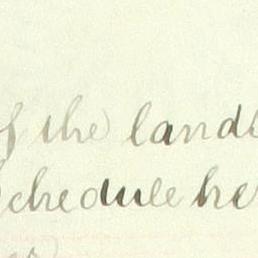 of the land
Schedule he